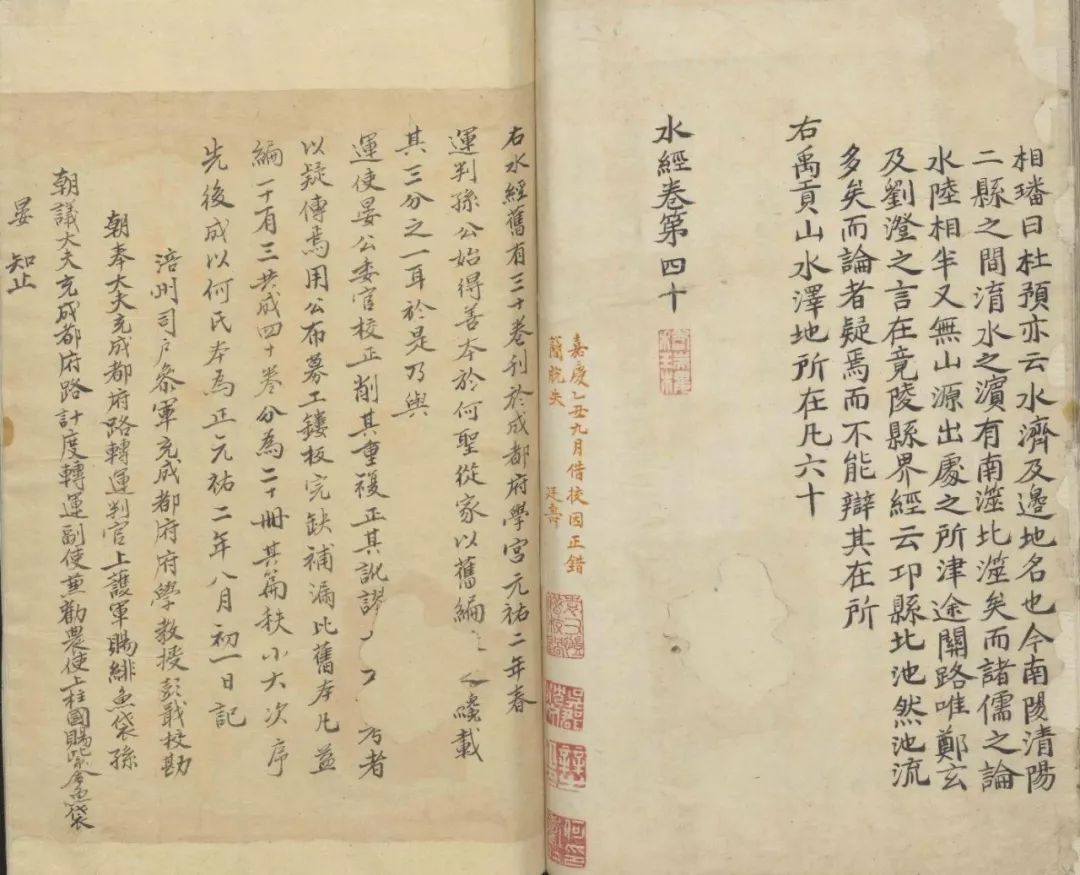 相璠曰杜預亦云水濟及邊地名也今南陽淯陽
二縣之間淯水之濱有南澨北澨矣而諸儒之論
水陸相半又無山源出處之所津途關路唯鄭玄
及劉澄之言在竟陵縣界經云邔縣北池然池流
多矣而論者疑焉而不能辯其在所
右禹貢山水澤地所在凡六十
水經卷第四十
嘉慶乙丑九月借校因正錯
簡脫失 廷壽
右水經舊有三十卷刊於成都府學宮元祐二年春
運判孫公始得善本於何聖從家以舊編 纔載
其三分之一耳於是乃與
運使晏公委官校正削其重複正其訛謬 者
以疑傳焉用公布募工鏤板完缺補漏比舊本凡益
編一十有三共成四十卷分為二十冊其篇秩小大次序
先後成以何氏本為正元祐二年八月初一日記
涪州司戶參軍充成都府府學教授彭戢校勘
朝奉大夫充成都府路轉運判官上護軍賜緋魚袋孫
朝議大夫充成都府路計度轉運副使兼勸農使上柱國賜紫金魚袋
晏 知止